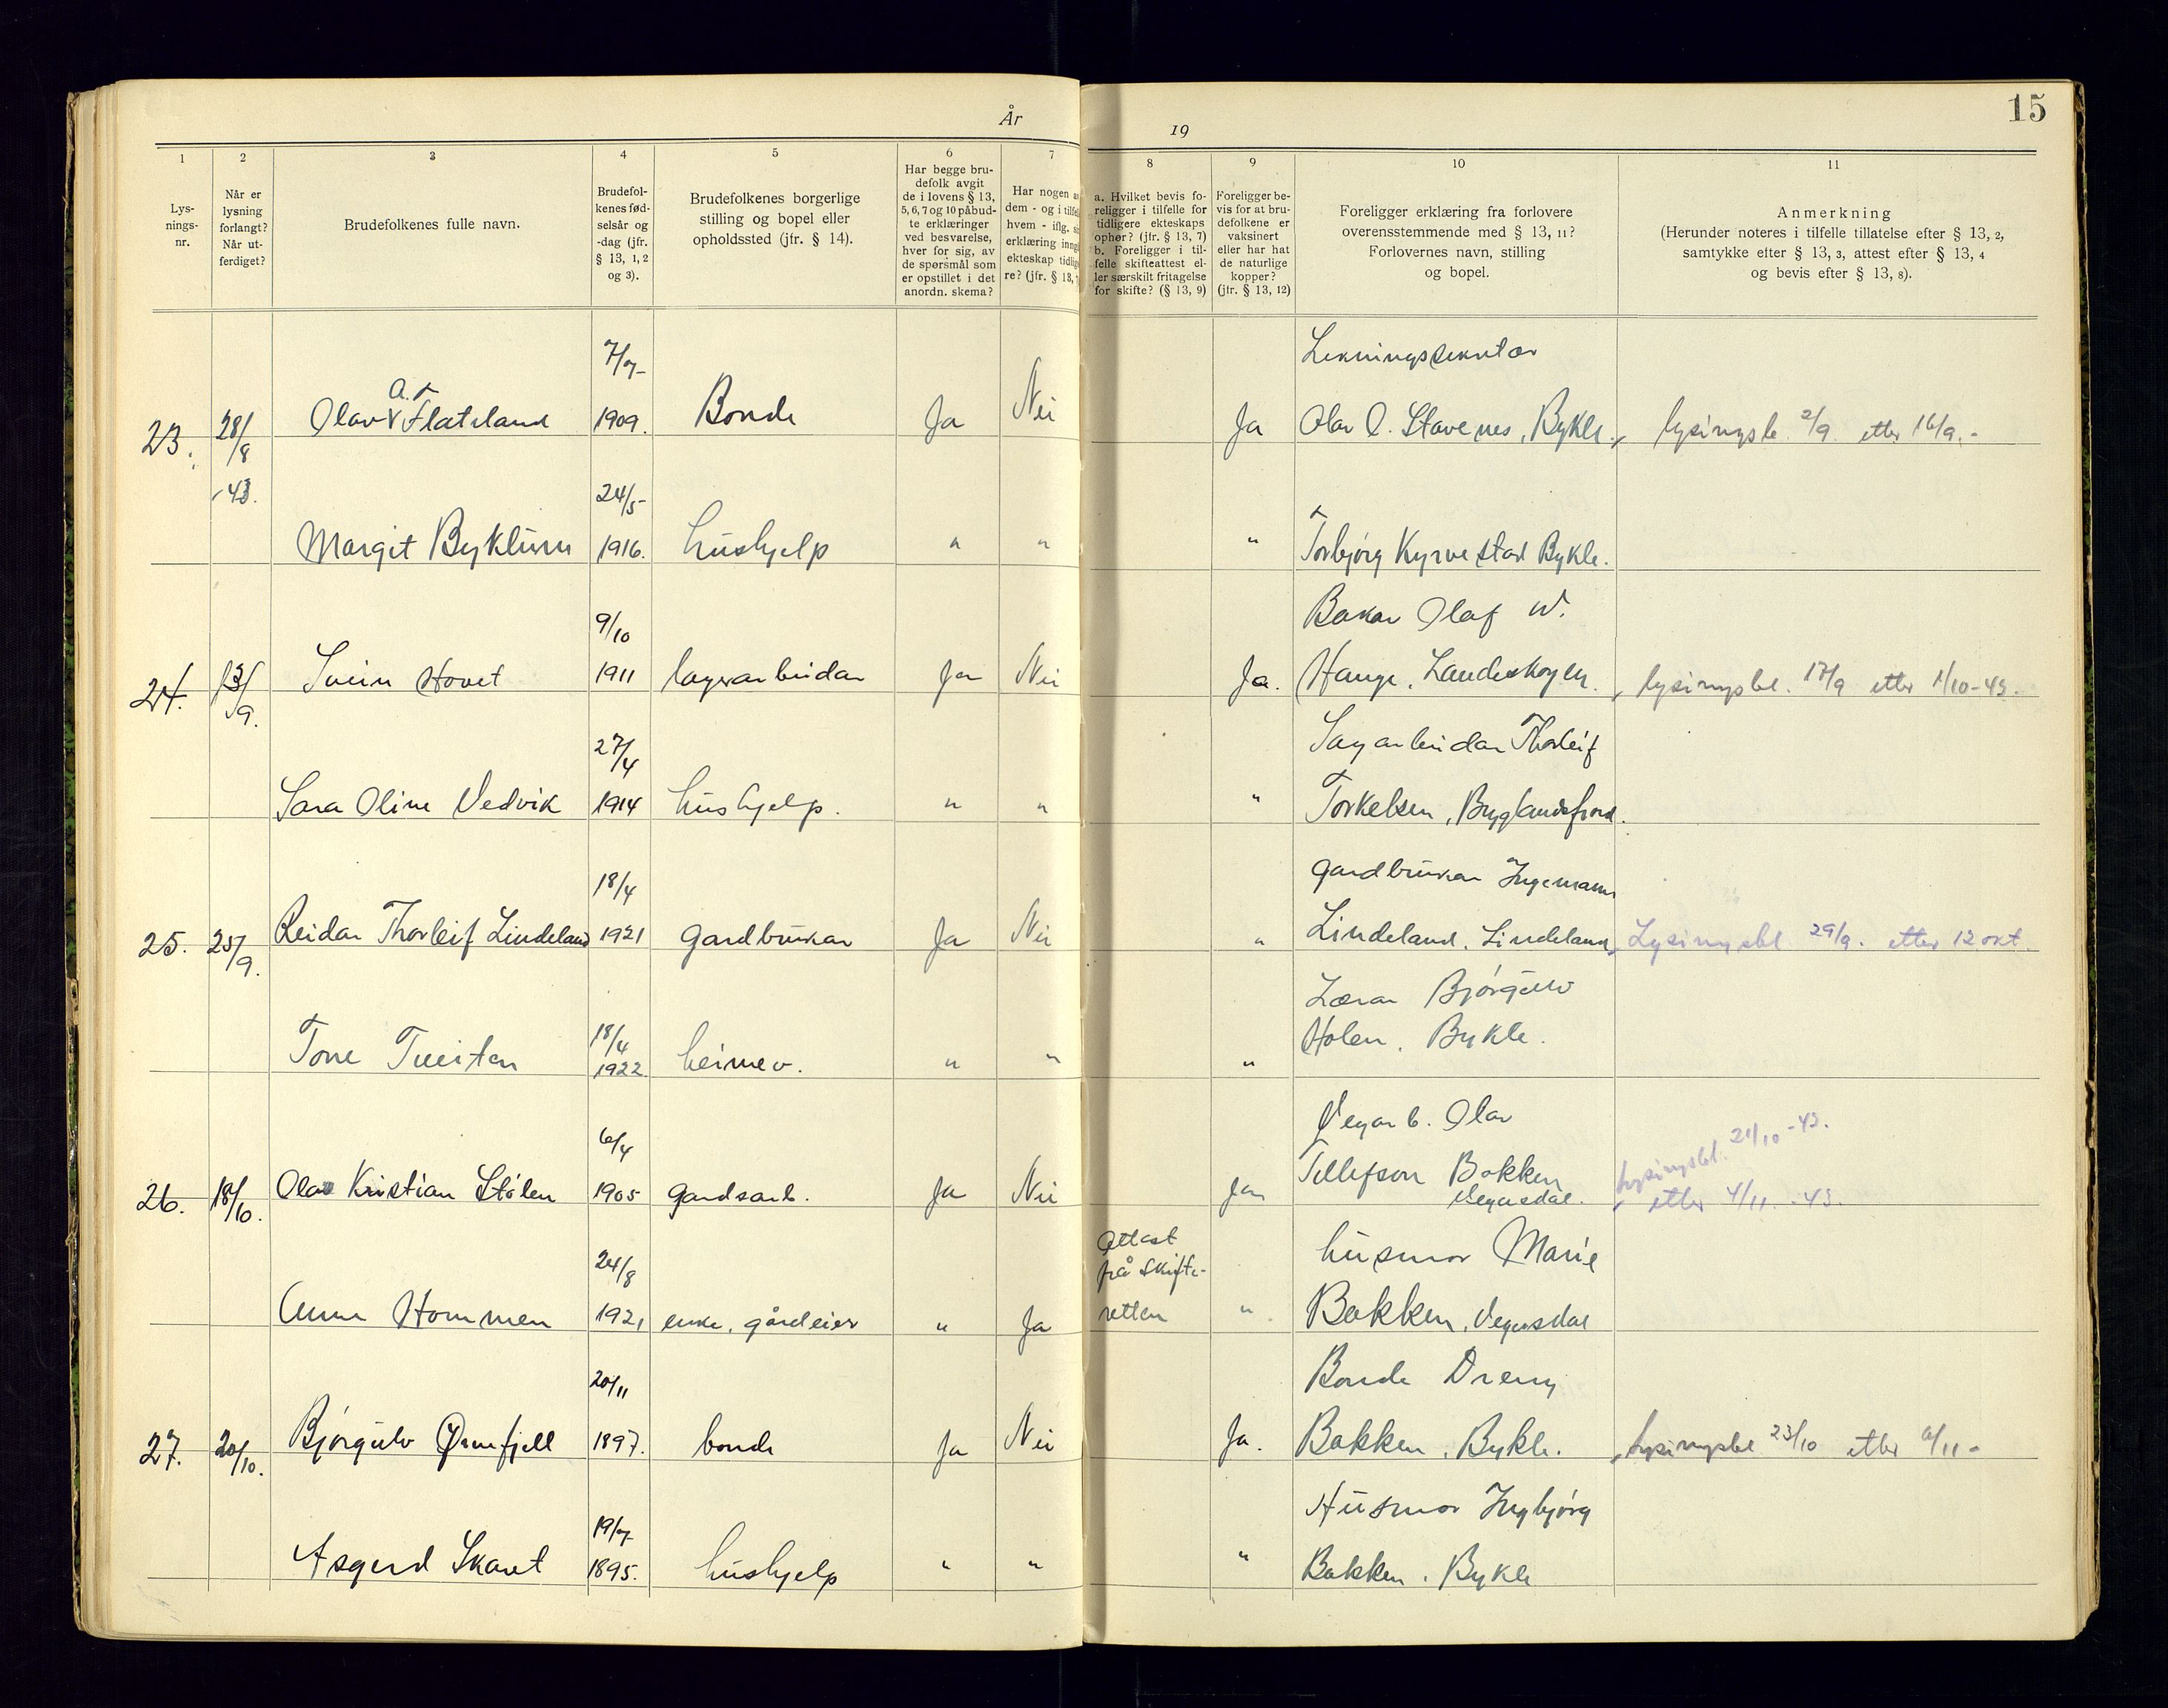 År 19
15
1 2 3 4 5 6 7 8 9 10 11
Lys-
nings-
nr.
Når er
lysning
forlangt?
Når ut-
ferdiget?
Brudefolkenes fulle navn.
Brudefol-
kenes fød-
selsår og
-dag (jfr.
§ 13, 1, 2
og 3).
Brudefolkenes borgerlige
stilling og bopel eller
opholdssted (jfr. § 14).
Har begge bru-
defolk avgit
de i lovens § 13,
5, 6, 7 og 10 påbud-
te erklæringer
ved besvarelse,
hver for sig, av
de spørsmål som
er opstillet i det
anordn. skema?
Har nogen a
dem - og i tilfel
hvem - iflg. si
erklæring inng
ekteskap tidlig
re? (jfr. § 13, 7
a. Hvilket bevis fo-
religger i tilfelle for
tidligere ekteskaps
ophør? (jfr. § 13, 7)
b. Foreligger i til-
felle skifteattest el-
ler særskilt fritagelse
for skifte? (§ 13, 9)
Foreligger be-
vis for at bru-
defolkene er
vaksinert
eller har hat
de naturlige
kopper?
(jfr. § 13, 12)
Foreligger erklæring fra forlovere
overensstemmende med § 13, 11?
Forlovernes navn, stilling
og bopel.
Anmerkning
(Herunder noteres i tilfelle tillatelse efter § 13, 2,
samtykke efter § 13, 3, attest efter § 13, 4
og bevis efter § 13, 8).
7/7- Lekningssekretær
A. T.
23. 28/8 Olav V Flateland 1909. Bonde Ja Nei Ja Olav O. Stavenes, Bykle. lysingsbl. 2/9 etter 16/9.-
-43. 24/5-
Margit Byklum 1916. hushjelp " " " Torbjørg Kyrvestad Bykle.
9/10 Bakar Olaf W.
24. 13/9. Svein Hovet 1911 lagerarbeidar Ja Nei Ja. Hauge, Landeskogen. lysingsbl. 17/9 etter 1/10-43.
27/4 Sagarbeidar Thorleif
Sara Oline Vedvik 1914 hushjelp. " " " Torkelsen, Byglandsfjord.
18/4 gardbrukar Ingemann
25. 25/9. Reidar Thorleif Lindeland 1921 gardbrukar Ja Nei " Lindeland, Lindeland, Lysingsbl. 29/9. etter 12 okt.
18/4 Lærar Bjørgulv
Tone Tveiten 1922 heimev. " " " Holen, Bykle.
6/4 Vegarb. Olav
26. 18/10. Olav Kristian Stølen 1905 gardsarb. Ja Nei Ja Tellefson Bakken Vegusdal. Lysingsbl. 21/10-43.
etter 4/11.-43.
24/8 Attest
frå skifte- husmor Marie
Anna Hommen 1921 enke, gårdeier " Ja retten " Bakken, Vegusdal
20/11 Bonde Dreng
27. 20/10. Bjørgulv Ørnefjell 1897. bonde Ja Nei Ja. Bakken, Bykle. Lysingsbl 23/10 etter 6/11-
19/7- Husmor Ingbjørg
Asgerd Skaret 1895. hushjelp " " " Bakken, Bykle